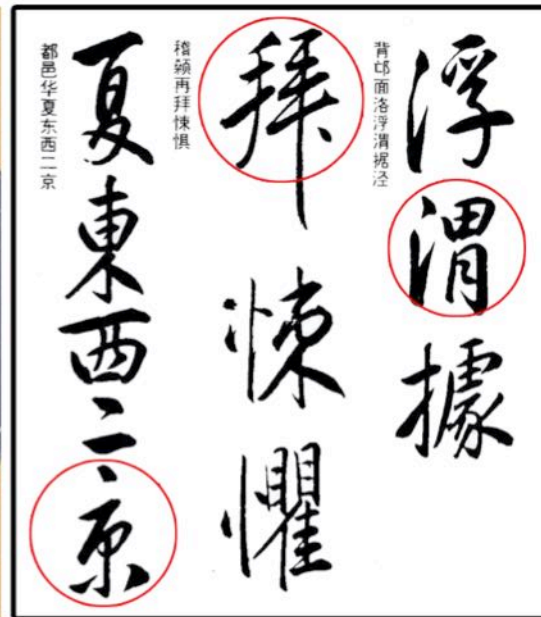 浮渭據
背邙面洛浮渭据泾
拜悚懼
稽颡再拜悚惧
夏東西二京
都邑华夏东西二京